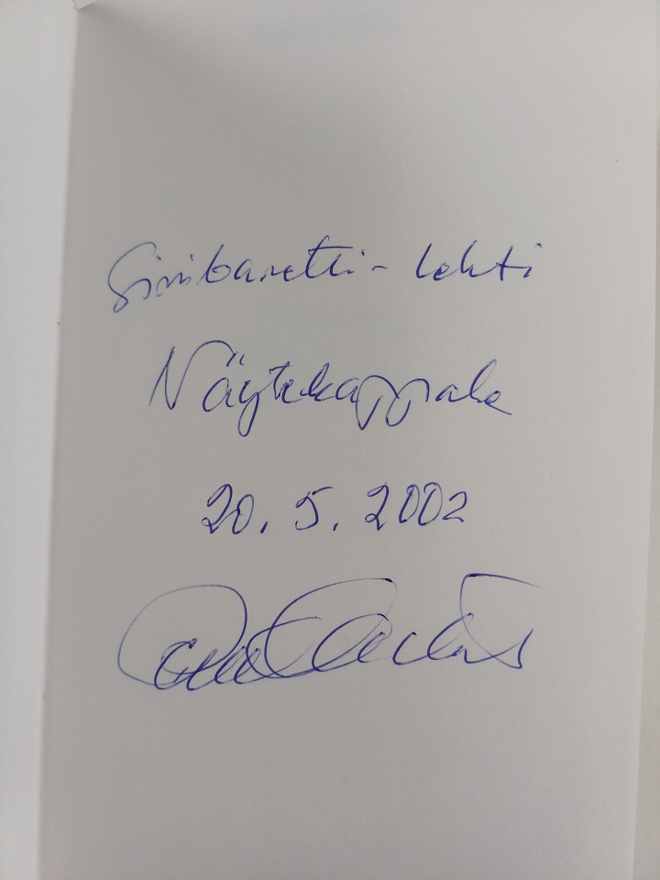 Sinibaretti-lehti
Näytekappale
20.5.2002